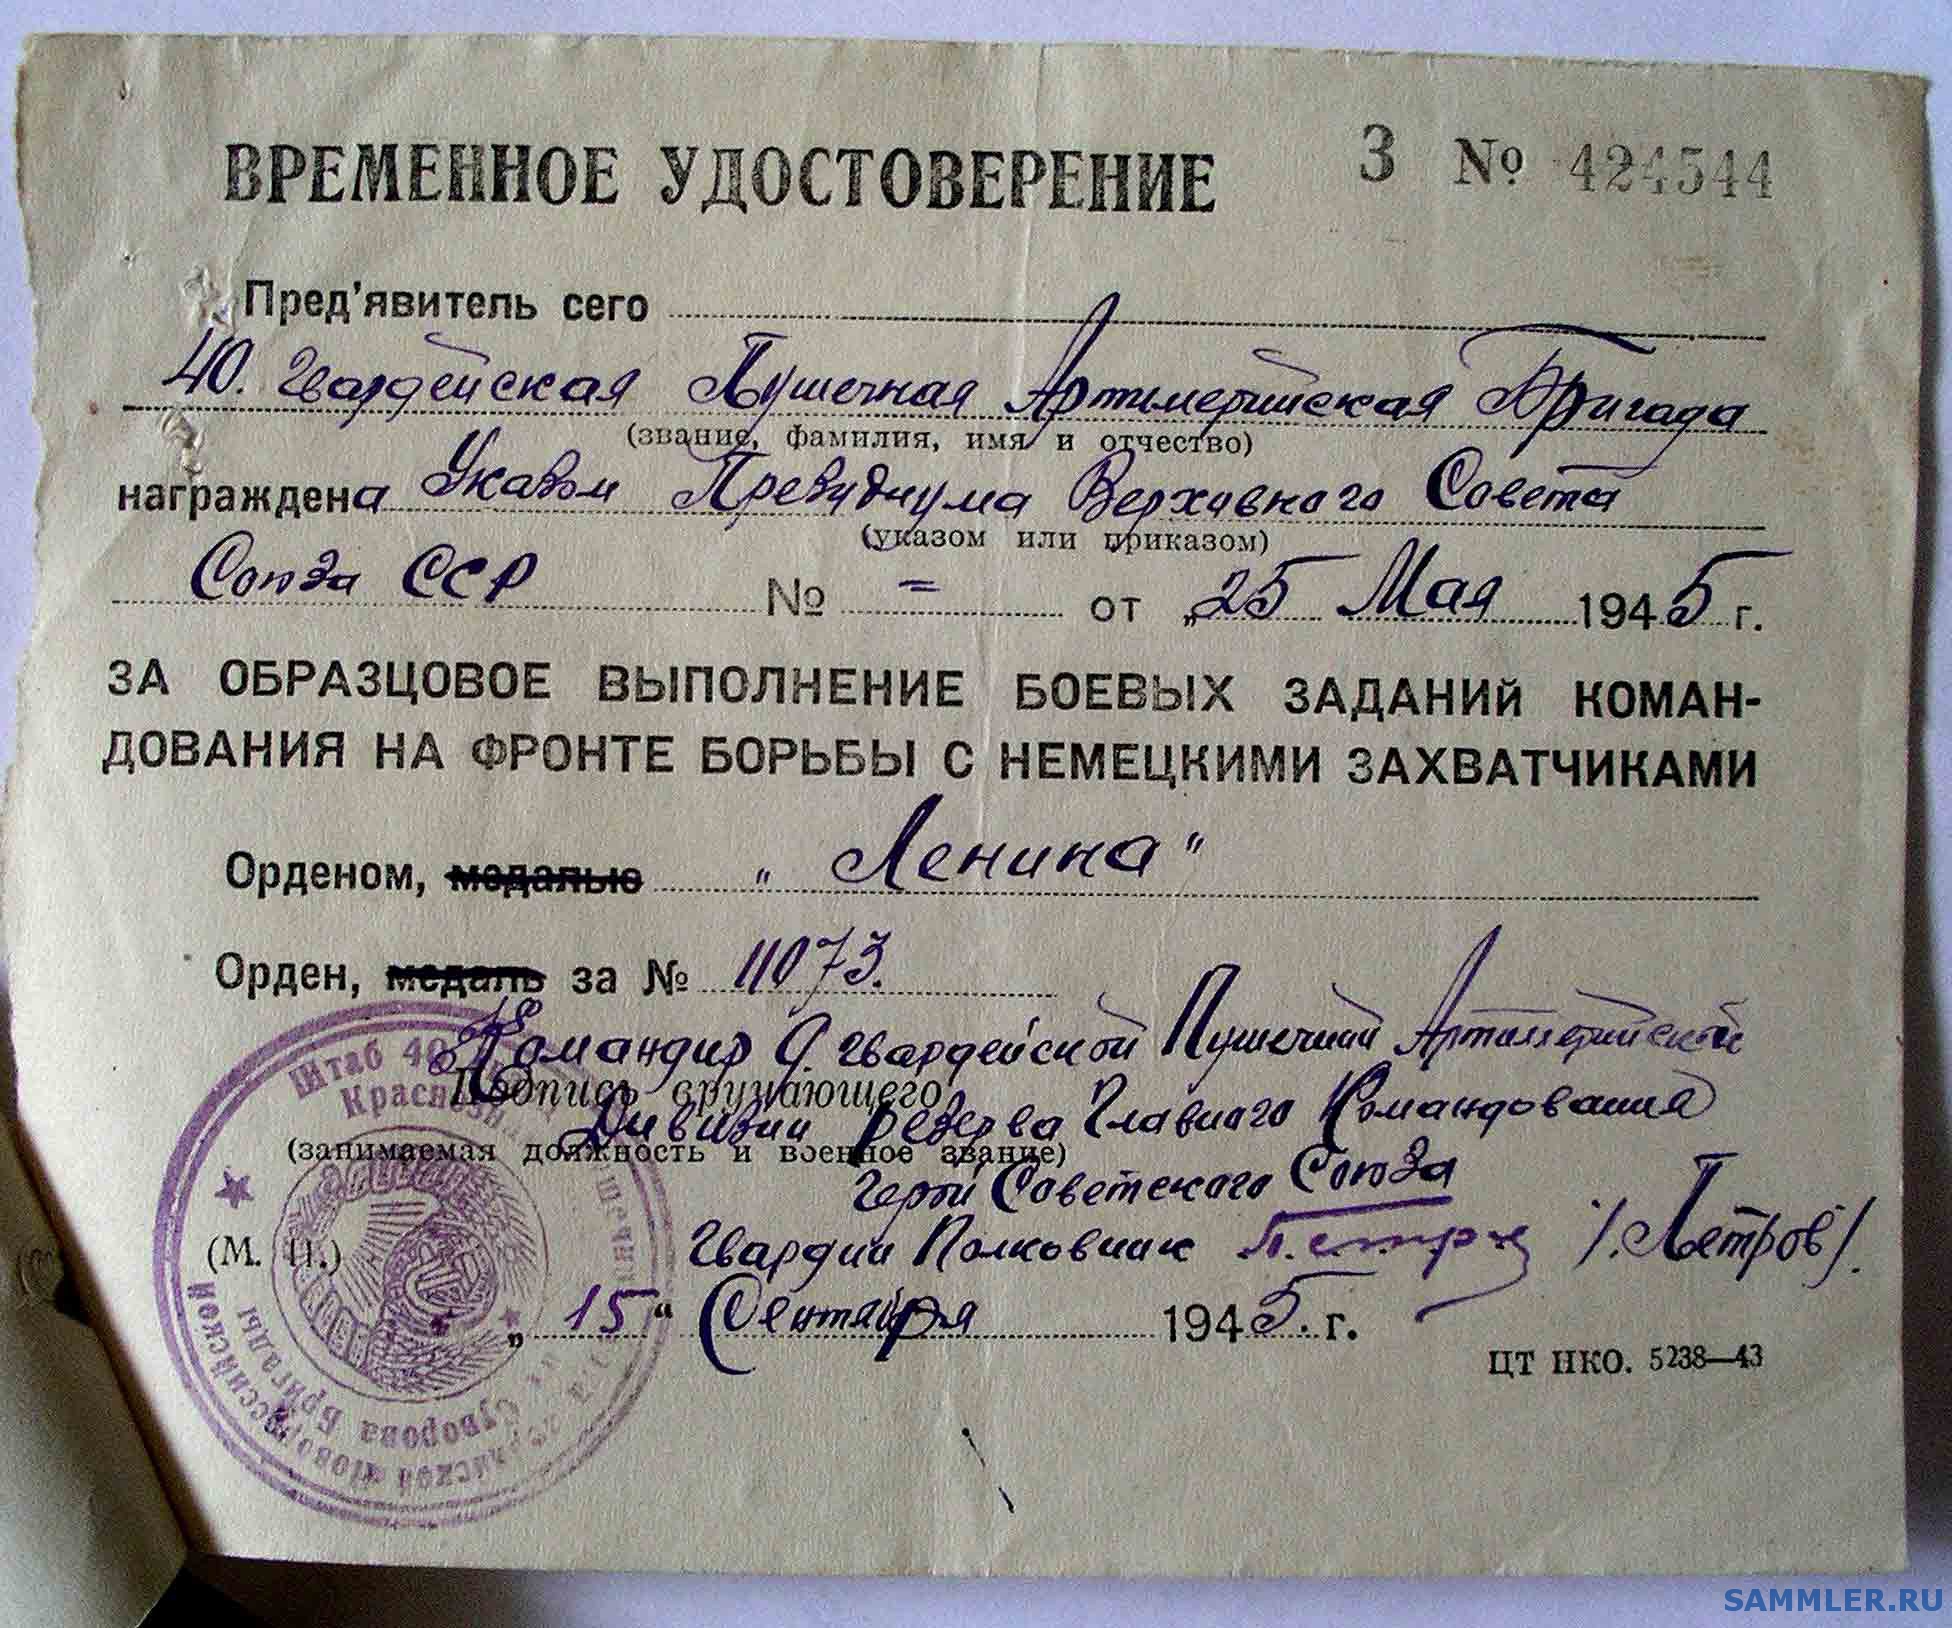 ВРЕМЕННОЕ УДОСТОВЕРЕНИЕ З № 424544
Пред'явитель сего
40. Гвардейская Пушечная Артиллерийская Бригада
(звание, фамилия, имя и отчество)
награждена Указом Президиума Верховного Совета
(указом или приказом)
Союза ССР № = от „25 Мая 1945 г.
ЗА ОБРАЗЦОВОЕ ВЫПОЛНЕНИЕ БОЕВЫХ ЗАДАНИЙ КОМАН-
ДОВАНИЯ НА ФРОНТЕ БОРЬБЫ С НЕМЕЦКИМИ ЗАХВАТЧИКАМИ
Орденом, медалью „ Ленина"
Орден, медаль за № 11073.
Командир 9. гвардейской Пушечной Артиллерийской
Подпись вручающего
Дивизии резерва Главного Командования
(занимаемая должность и военное звание)
Герой Советского Союза
Гвардии Полковник /.Петров/.
(М. П.)
„ 15 " Сентября 1945. г.
ЦТ НКО. 5238—43
Штаб 40
Суворова Бригады
SAMMLER.RU